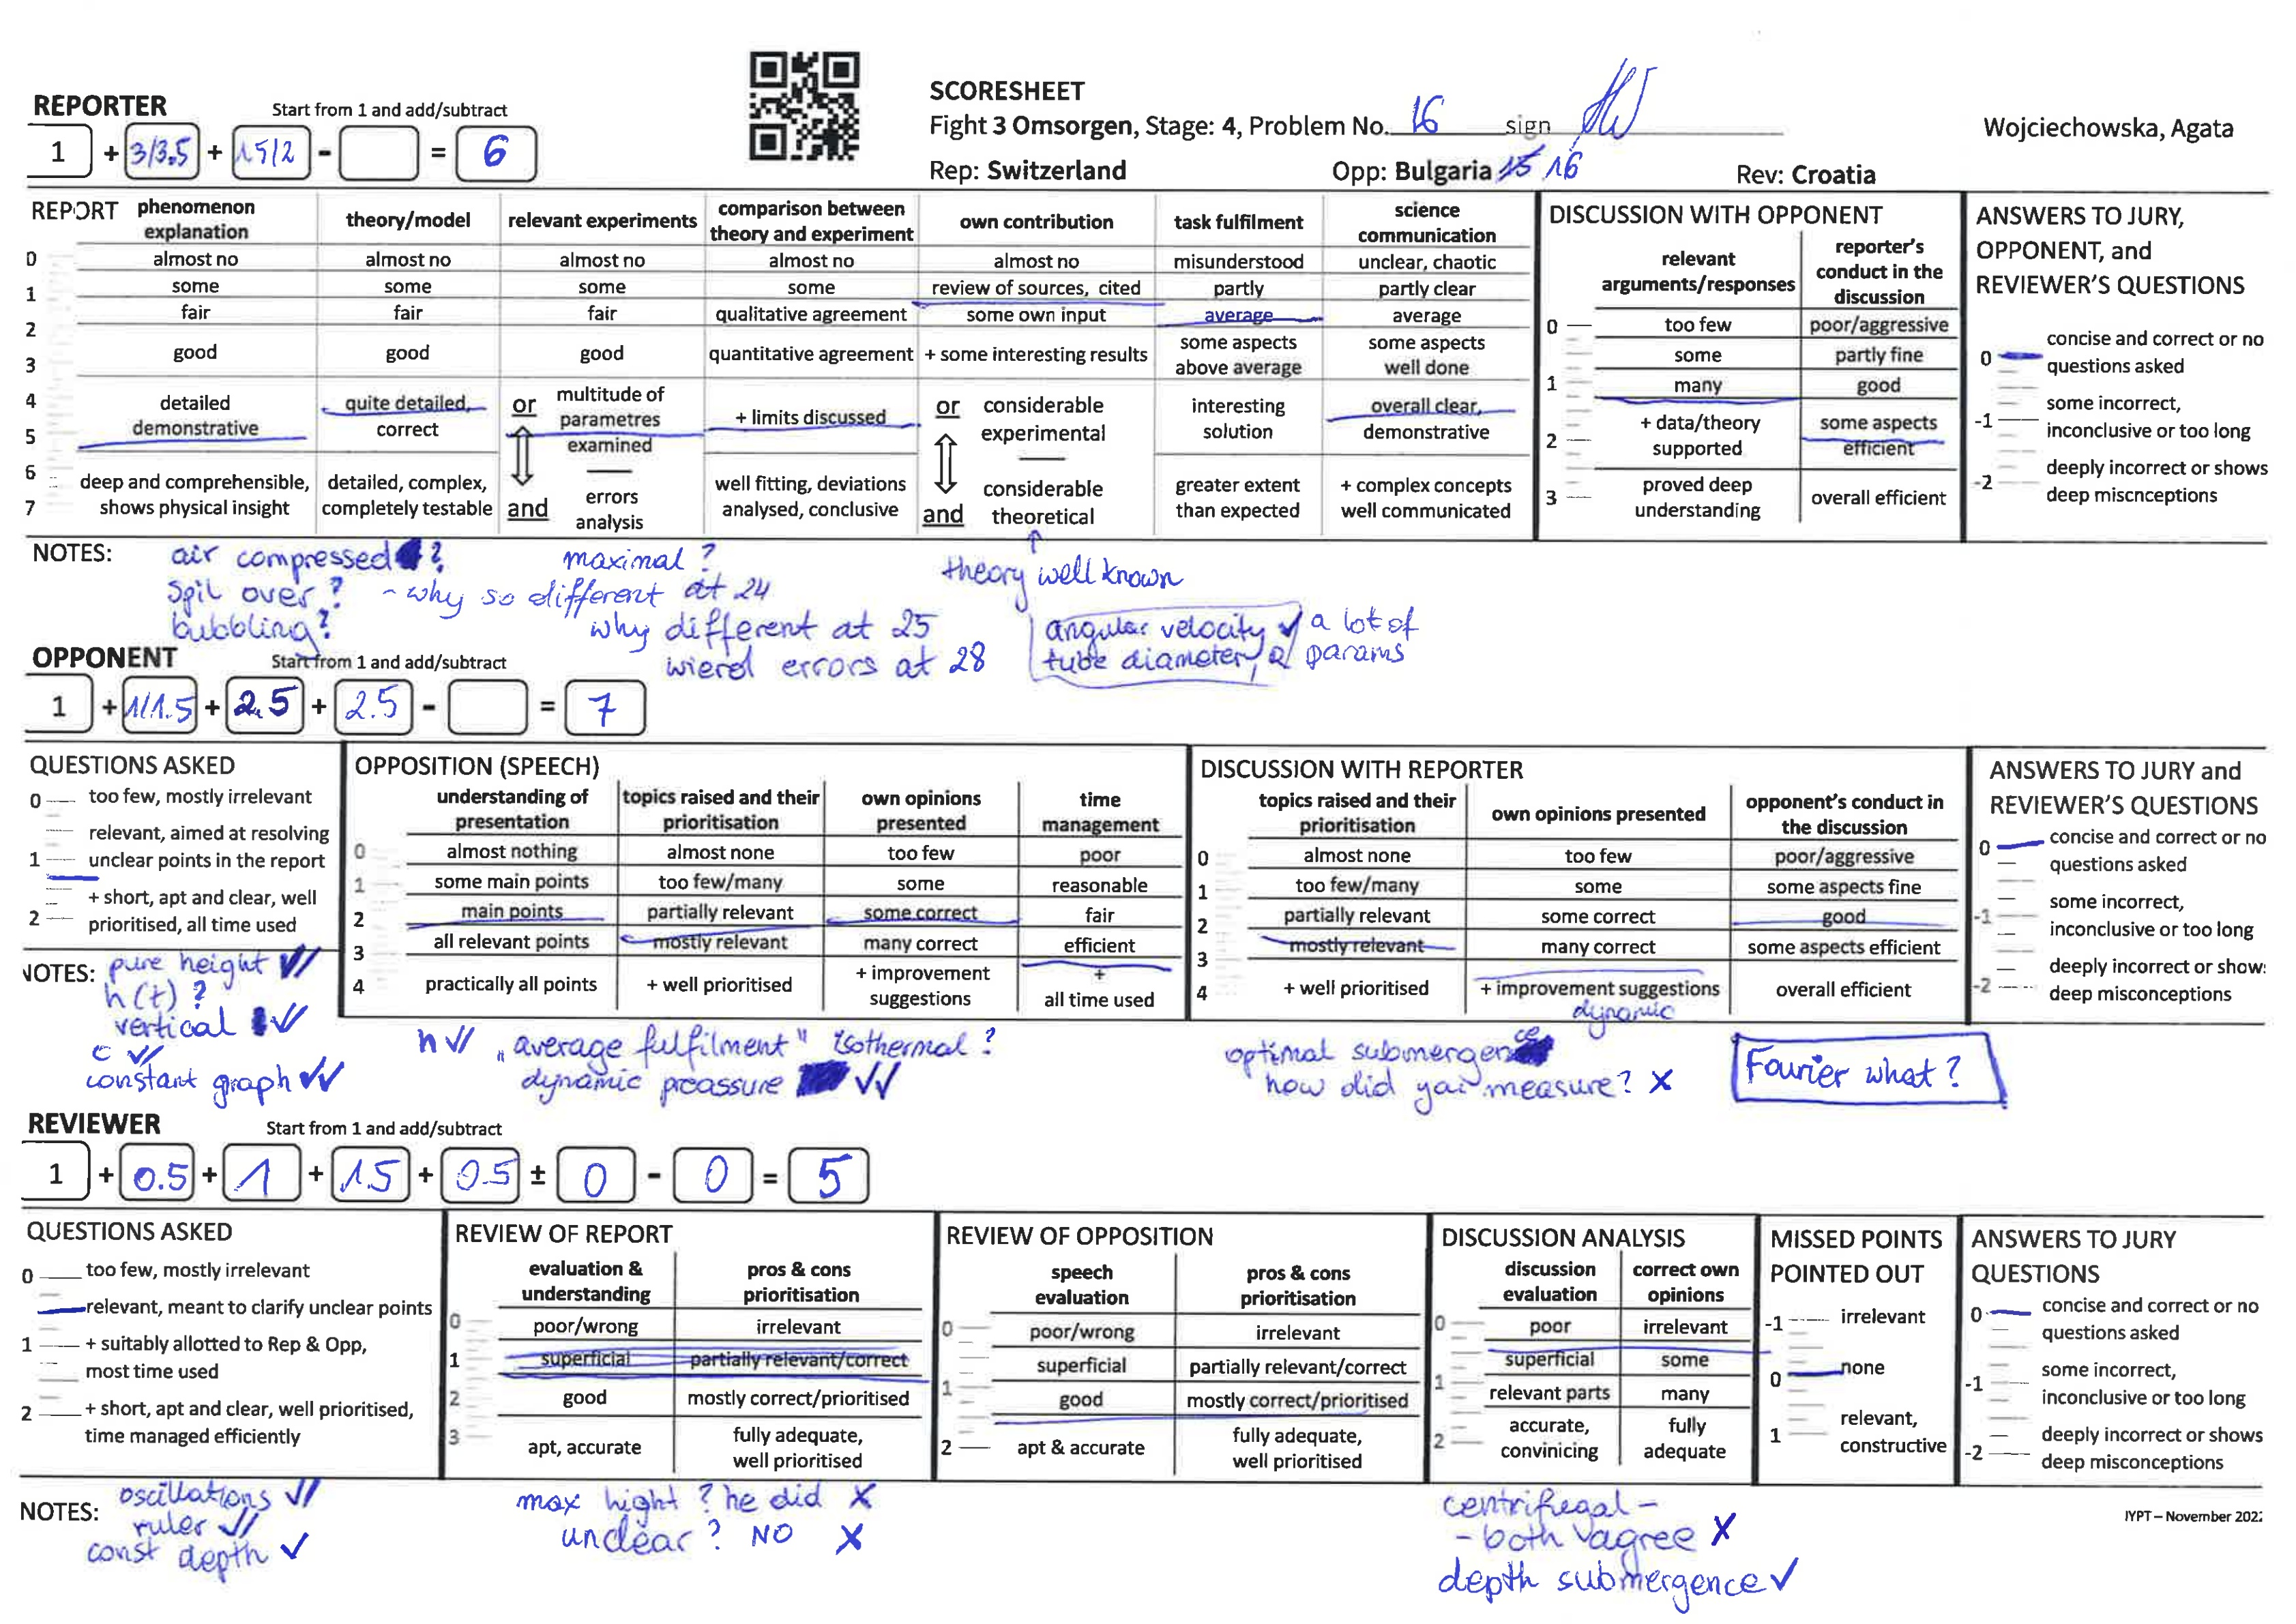 SCORESHEET
Fight 3 Omsorgen, Stage: 4, Problem No. 16 sign
Wojciechowska, Agata
Rep: Switzerland Opp: Bulgaria 15 16 Rev: Croatia
REPORTER Start from 1 and add/subtract
1 + 3/3.5 + 1.5/2 - = 6
REPORT
phenomenon explanation
theory/model
relevant experiments
comparison between theory and experiment
own contribution
task fulfilment
science communication
0 almost no almost no almost no almost no almost no misunderstood unclear, chaotic
1 some some some some review of sources, cited partly partly clear
2 fair fair fair qualitative agreement some own input average average
3 good good good quantitative agreement + some interesting results some aspects above average some aspects well done
4
5
detailed demonstrative
quite detailed, correct
or multitude of parametres examined
+ limits discussed
or considerable experimental
interesting solution
overall clear, demonstrative
6
7
deep and comprehensible, shows physical insight
detailed, complex, completely testable
and errors analysis
well fitting, deviations analysed, conclusive
and considerable theoretical
greater extent than expected
+ complex concepts well communicated
DISCUSSION WITH OPPONENT
relevant arguments/responses
reporter's conduct in the discussion
0 too few poor/aggressive
some partly fine
1 many good
2 + data/theory supported some aspects efficient
3 proved deep understanding overall efficient
ANSWERS TO JURY, OPPONENT, and REVIEWER'S QUESTIONS
0 concise and correct or no questions asked
-1 some incorrect, inconclusive or too long
-2 deeply incorrect or shows deep miscnceptions
NOTES:
air compressed ?
spil over?
bubbling?
maximal?
- why so different at 24
why different at 25
wierd errors at 28
theory well known
angular velocity ✓
tube diameter,
a lot of
params
OPPONENT Start from 1 and add/subtract
1 + 1/1.5 + 2.5 + 2.5 - = 7
QUESTIONS ASKED
0 too few, mostly irrelevant
1 relevant, aimed at resolving unclear points in the report
2 + short, apt and clear, well prioritised, all time used
OPPOSITION (SPEECH)
understanding of presentation
topics raised and their prioritisation
own opinions presented
time management
0 almost nothing almost none too few poor
1 some main points too few/many some reasonable
2 main points partially relevant some correct fair
3 all relevant points mostly relevant many correct efficient
4 practically all points + well prioritised + improvement suggestions + all time used
DISCUSSION WITH REPORTER
topics raised and their prioritisation
own opinions presented
opponent's conduct in the discussion
0 almost none too few poor/aggressive
1 too few/many some some aspects fine
2 partially relevant some correct good
3 mostly relevant many correct some aspects efficient
4 + well prioritised + improvement suggestions overall efficient
ANSWERS TO JURY and REVIEWER'S QUESTIONS
0 concise and correct or no questions asked
-1 some incorrect, inconclusive or too long
-2 deeply incorrect or show: deep misconceptions
NOTES:
pure height ✓✓
h(t) ?
vertical ✓✓
c ✓✓
constant graph ✓✓
h ✓✓ "average fulfilment" isothermal?
dynamic preassure ✓✓
dynamic
optimal submergence
how did you measure? x
Fourier what?
REVIEWER Start from 1 and add/subtract
1 + 0.5 + 1 + 1.5 + 0.5 ± 0 - 0 = 5
QUESTIONS ASKED
0 too few, mostly irrelevant
relevant, meant to clarify unclear points
1 + suitably allotted to Rep & Opp, most time used
2 + short, apt and clear, well prioritised, time managed efficiently
REVIEW OF REPORT
evaluation & understanding
pros & cons prioritisation
0 poor/wrong irrelevant
1 superficial partially relevant/correct
2 good mostly correct/prioritised
3 apt, accurate fully adequate, well prioritised
REVIEW OF OPPOSITION
speech evaluation
pros & cons prioritisation
0 poor/wrong irrelevant
superficial partially relevant/correct
1 good mostly correct/prioritised
2 apt & accurate fully adequate, well prioritised
DISCUSSION ANALYSIS
discussion evaluation
correct own opinions
0 poor irrelevant
superficial some
1 relevant parts many
2 accurate, convinicing fully adequate
MISSED POINTS POINTED OUT
-1 irrelevant
0 none
1 relevant, constructive
ANSWERS TO JURY QUESTIONS
0 concise and correct or no questions asked
-1 some incorrect, inconclusive or too long
-2 deeply incorrect or shows deep misconceptions
NOTES:
oscillations ✓✓
ruler ✓✓
const depth ✓
max hight? he did x
unclear? NO x
centrifugal -
- both agree x
depth submergence ✓
IYPT – November 2022